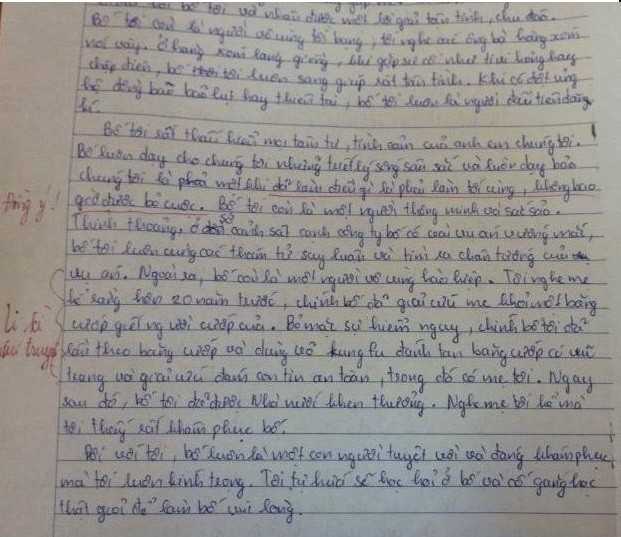 bố tôi và nhận được một lời giải tận tình, chu đáo.
Bố tôi còn là người vô cùng tốt bụng, tôi nghe các ông bà hàng xóm
nói vậy. Ở hàng xóm láng giềng, khi gặp sự cố như trôi hỏng hay
chập điện, bố tôi luôn sang giúp rất tận tình. Khi có đợt ủng
hộ đồng bào bão lụt hay thiên tai, bố tôi luôn là người đầu tiên đóng
Bố tôi rất thấu hiểu mọi tâm tư, tình cảm của anh em chúng tôi.
Bố luôn dạy cho chúng tôi những triết lý sống sâu sắc và luôn dạy bảo
chúng tôi là phải một khi đã làm điều gì là phải làm tới cùng, không bao
giờ được bỏ cuộc. Bố tôi còn là một người thông minh và sắc sảo.
Đồng ý!
Thỉnh thoảng, ở sở cảnh sát cạnh công ty bố có vài vụ án vướng mắc,
bố tôi luôn cùng các thám tử suy luận và tìm ra chân tướng của
vụ án. Ngoài ra, bố còn là một người vô cùng hào hiệp. Tôi nghe mẹ
kể rằng hơn 20 năm trước, chính bố đã giải cứu mẹ khỏi một băng
cướp giết người cướp của. Bỏ mặc sự hiểm nguy, chính bố tôi đã
Li kì
như truyện
lần theo băng cướp và dùng võ kungfu đánh tan băng cướp có vũ
trang và giải cứu đám con tin an toàn, trong đó có mẹ tôi. Ngay
sau đó, bố tôi đã được Nhà nước khen thưởng. Nghe mẹ tôi kể mà
tôi thấy rất khâm phục bố.
Đối với tôi, bố luôn là một con người tuyệt vời và đáng khâm phục
mà tôi luôn kính trọng. Tôi tự hứa sẽ học hỏi ở bố và cố gắng học
thật giỏi để làm bố vui lòng.